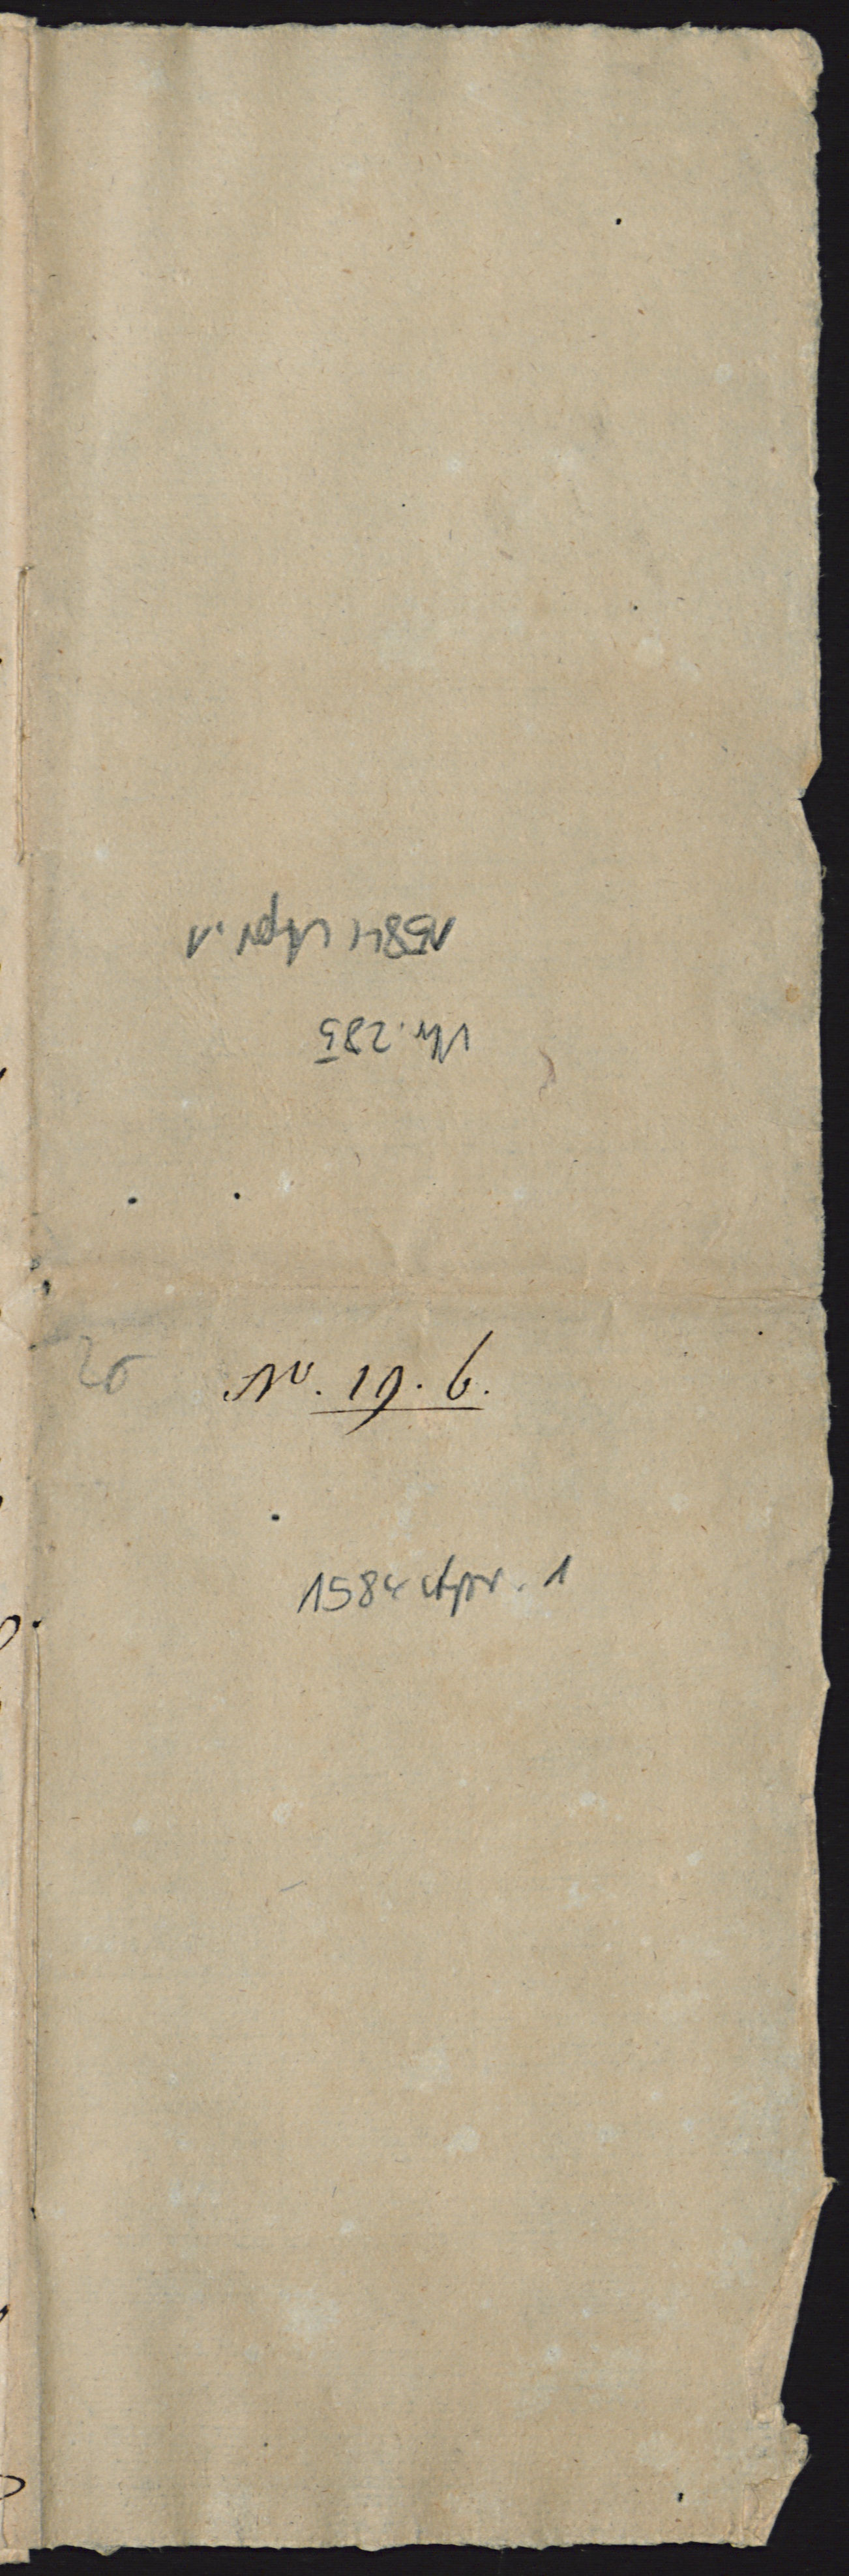 1584 Apr. 1
Nr. 285
20
No. 19. 6.
1584 Apr. 1